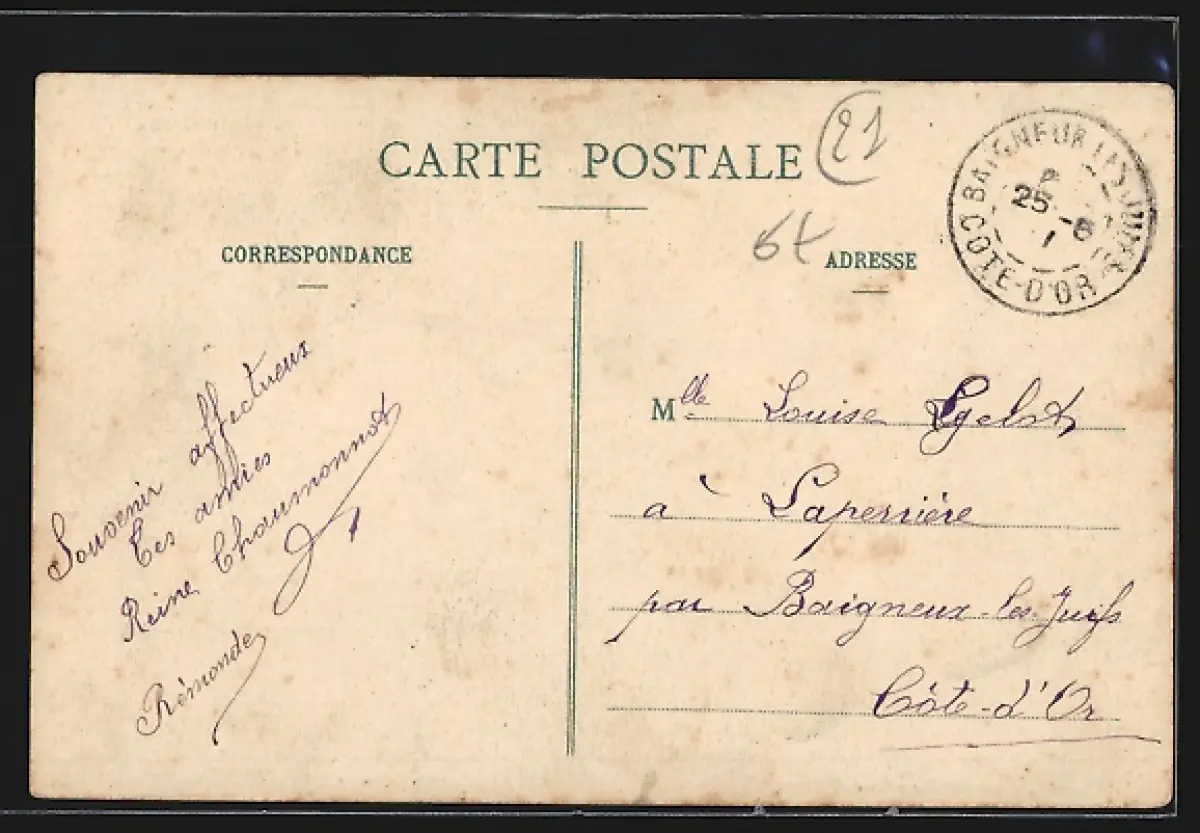 CARTE POSTALE
21
6t
CORRESPONDANCE
ADRESSE
BAIGNEUX LES JUIFS
25 -6
COTE-D'OR
Souvenir affectueux
Tes amies
Reine Chaumonnot
Rémonde
Mlle Louise
à Laperrière
par Baigneux-les-Juifs
Côte-d'Or